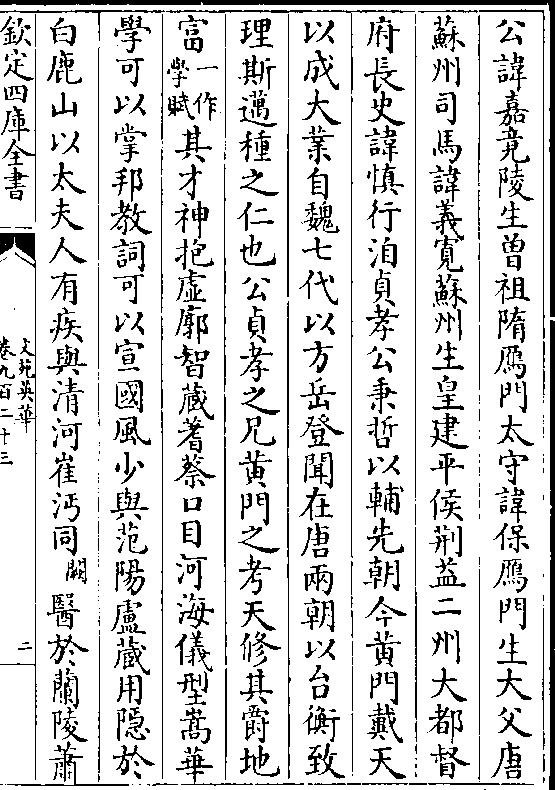 公諱嘉竟陵生曽祖隋鴈門太守諱保鴈門生大父唐
蘇州司馬諱義寛蘇州生皇建平侯荆益二州大都督
府長史諱慎行洎貞孝公秉哲以輔先朝今黄門戴天
以成大業自魏七代以方岳登聞在唐兩朝以台衡致
理斯邁種之仁也公貞孝之兄黄門之考天修其爵地
富一作學賦其才神抱虛廓智蔵蓍蔡口目河海儀型嵩華
學可以掌邦教詞可以宣國風少與范陽盧蔵用隠於
白鹿山以太夫人有疾與清河崔沔同闕醫於蘭陵蕭
欽定四庫全書
文苑英華
卷九百二十三
二